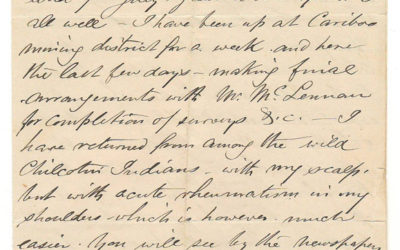 all well - I have been up at Cariboo
mining district for a week and here
the last few days - making final
arrangements with Mr. McLennan
for completion of surveys &c. - I
have returned from among the wild
Chilcotin Indians - with my scalp.
but with acute rheumatism in my
shoulders - which is however much
easier. You will see by the newspapers